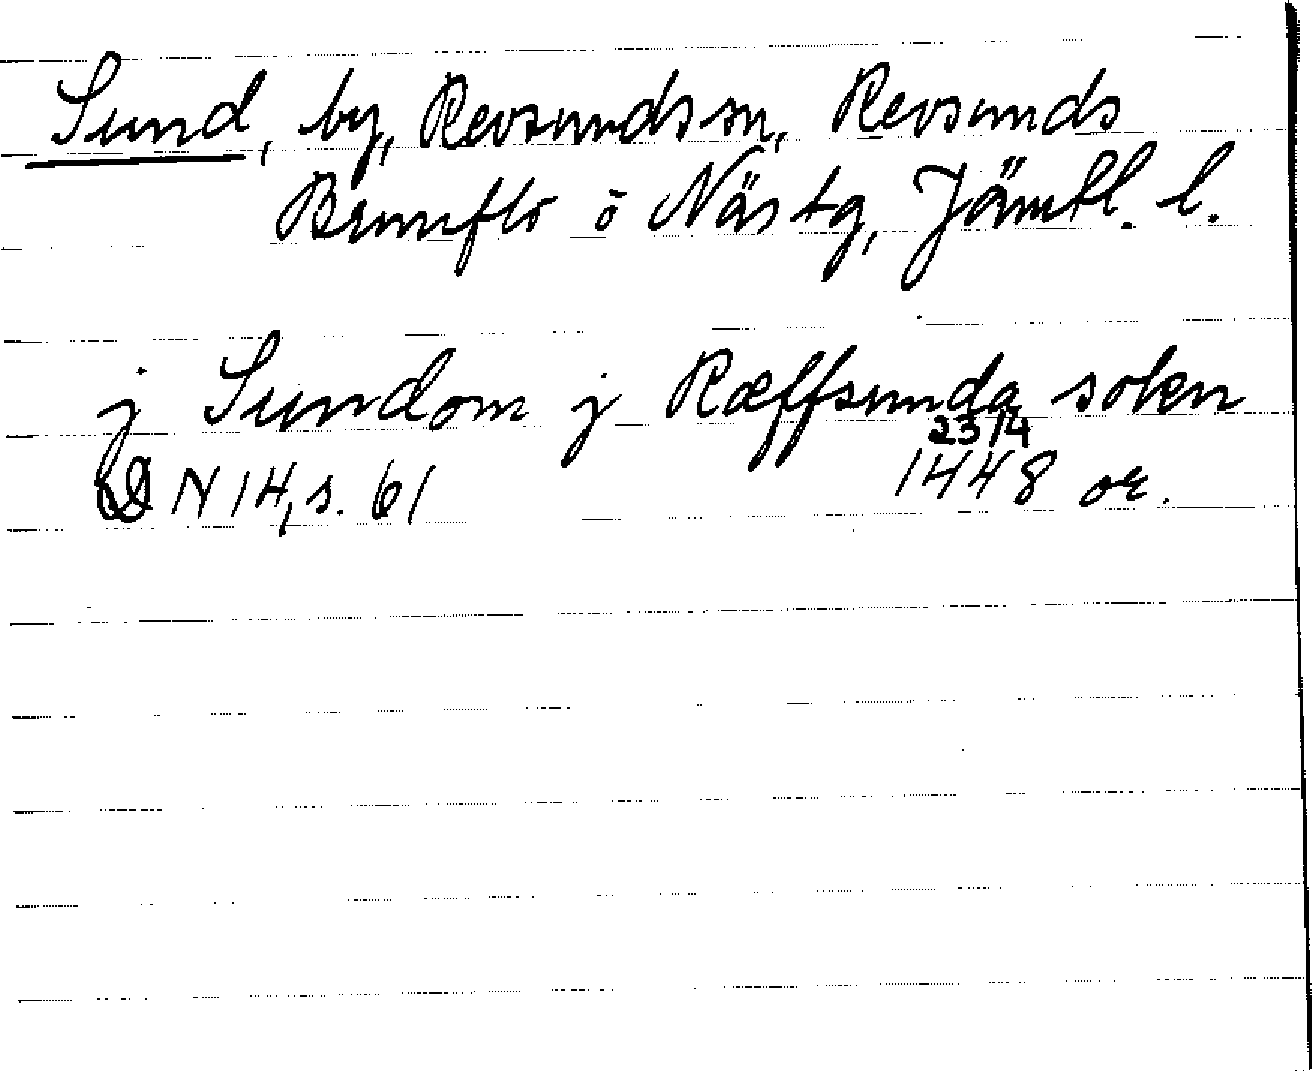 Sund, by, Revsunds sn, Revsunds
Brunflo o Näs tg, Jämtl. l.
j Sundom j Ræffsunda soken
23/4
DN 14, s. 61 1448 or.